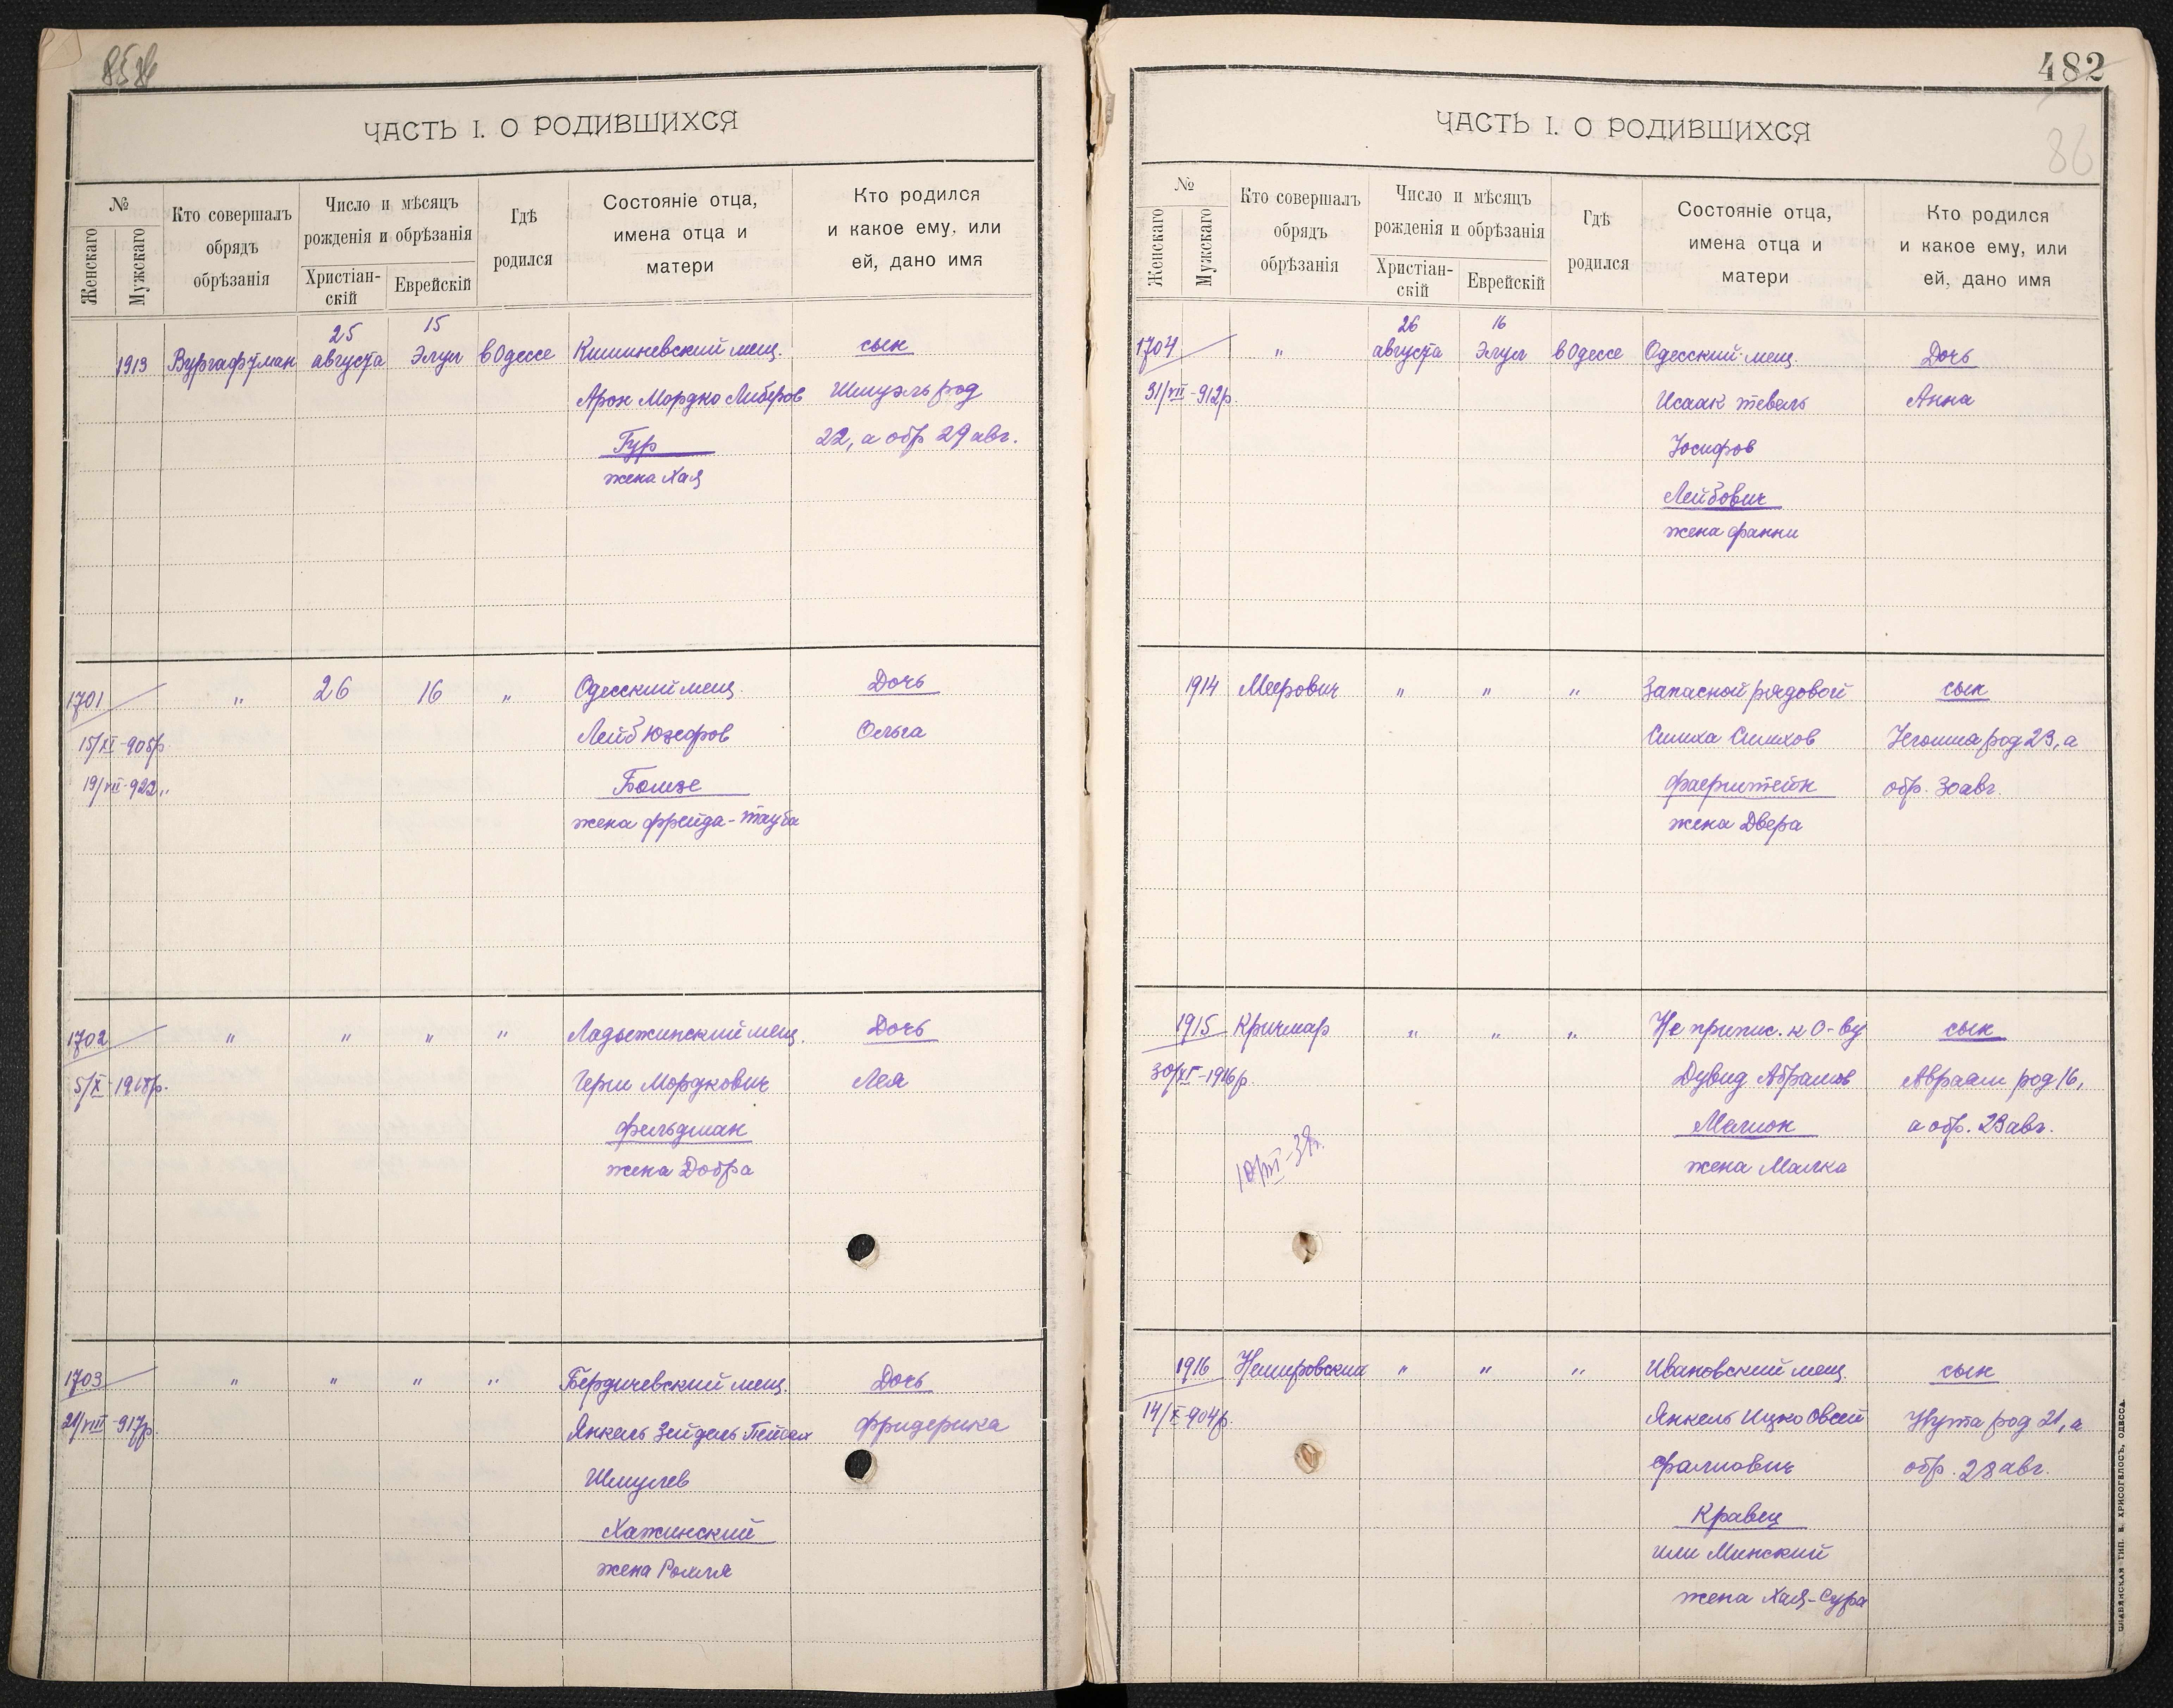 ЧАСТЬ I. О РОДИВШИХСЯ
№
Женскаго
Мужскаго
Кто совершалъ
обрядъ
обрѣзанія
Число и мѣсяцъ
рожденія и обрѣзанія
Христіан-
скій
Еврейскій
Гдѣ
родился
Состояніе отца,
имена отца и
матери
Кто родился
и какое ему, или
ей, дано имя
25 15
1913 Вургафтман августа Элул в Одессе Кишиневский мещ. сын
Арон Мордко Либеров Шмуэль род
Гур 22, а обр 29 авг.
жена Хая
1701 " 26 16 " Одесский мещ. Дочь
15/XI-906р. Лейб Юзефов Ольга
19/VII-922" Бомзе
жена Фрейда-Тауба
1702 " " " " Ладыжинский мещ. Дочь
5/X-1916р. Герш Мордкович Лея
Фельдман
жена Добра
1703 " " " " Бердичевский мещ. Дочь
21/VIII-917р. Янкель Зейдель Пейсах Фридерика
Шмулев
Хажинский
жена Рохля
482
86
ЧАСТЬ I. О РОДИВШИХСЯ
№
Женскаго
Мужскаго
Кто совершалъ
обрядъ
обрѣзанія
Число и мѣсяцъ
рожденія и обрѣзанія
Христіан-
скій
Еврейскій
Гдѣ
родился
Состояніе отца,
имена отца и
матери
Кто родился
и какое ему, или
ей, дано имя
26 16
1704 " августа Элул в Одессе Одесский мещ. Дочь
31/VII-912р. Исаак Тевель Анна
Іосифов
Лейбович
жена Фанни
1914 Меерович " " " Запасной рядовой сын
Симха Симхов род 23, а
Фаерштейн обр. 30 авг.
жена Двера
1915 Кричмар " " " Не припис. к о-ву сын
30/XI-1916р. Дувид Абрамов Авраам род 16,
Малион а обр. 23 авг.
жена Малка
1916 Немировский " " " Ивановский мещ. сын
14/X-904р. Янкель Ицко Овсей Нута род 21, а
Фалиович обр. 28 авг.
Кравец
или Минский
жена Хая-Сура
СЛАВЯНСКАЯ ТИП. Н. ХРИСОГЕЛОСЪ, ОДЕССА.